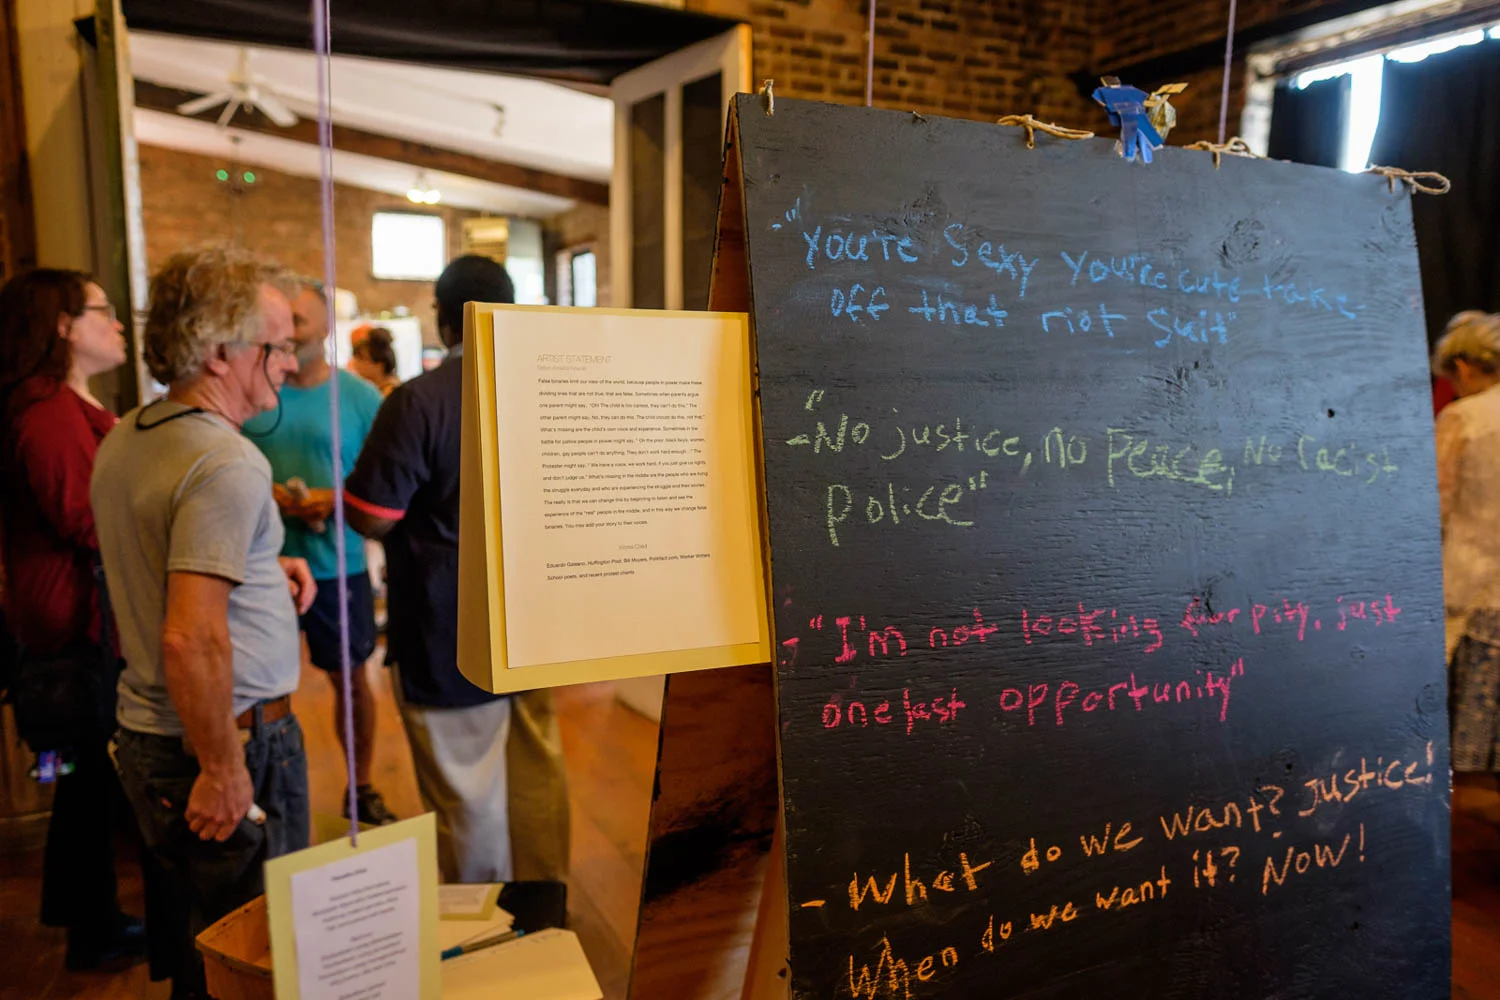 ARTIST STATEMENT
False binaries limit our view of the world, because people in power make these
dividing lines that are not true, that are false. Sometimes when parents argue
one parent might say, "Oh! The child is too careless, they can't do this." The
other parent might say, No, they can do this. The child should do this, not that."
What's missing are the child's own voice and experience. Sometimes in the
battle for justice people in power might say, " Oh the poor, black boys, women,
children, gay people can't do anything. They don't work hard enough..." The
Protester might say, " We have a voice, we work hard, if you just give us rights
and don't judge us." What's missing in the middle are the people who are living
the struggle everyday and who are experiencing the struggle and their stories.
The reality is that we can change this by beginning to listen and see the
experience of the "real" people in the middle, and in this way we change false
binaries. You may add your story to their voices.
Works Cited
Eduardo Galeano, Huffington Post, Bill Moyers, Politifact.com, Worker Writers
School poets, and recent protest chants
- "You're sexy you're cute take
off that riot suit"
- "No justice, no peace, No racist
police"
- "I'm not looking for pity, just
one last opportunity"
- What do we want? Justice!
When do we want it? Now!